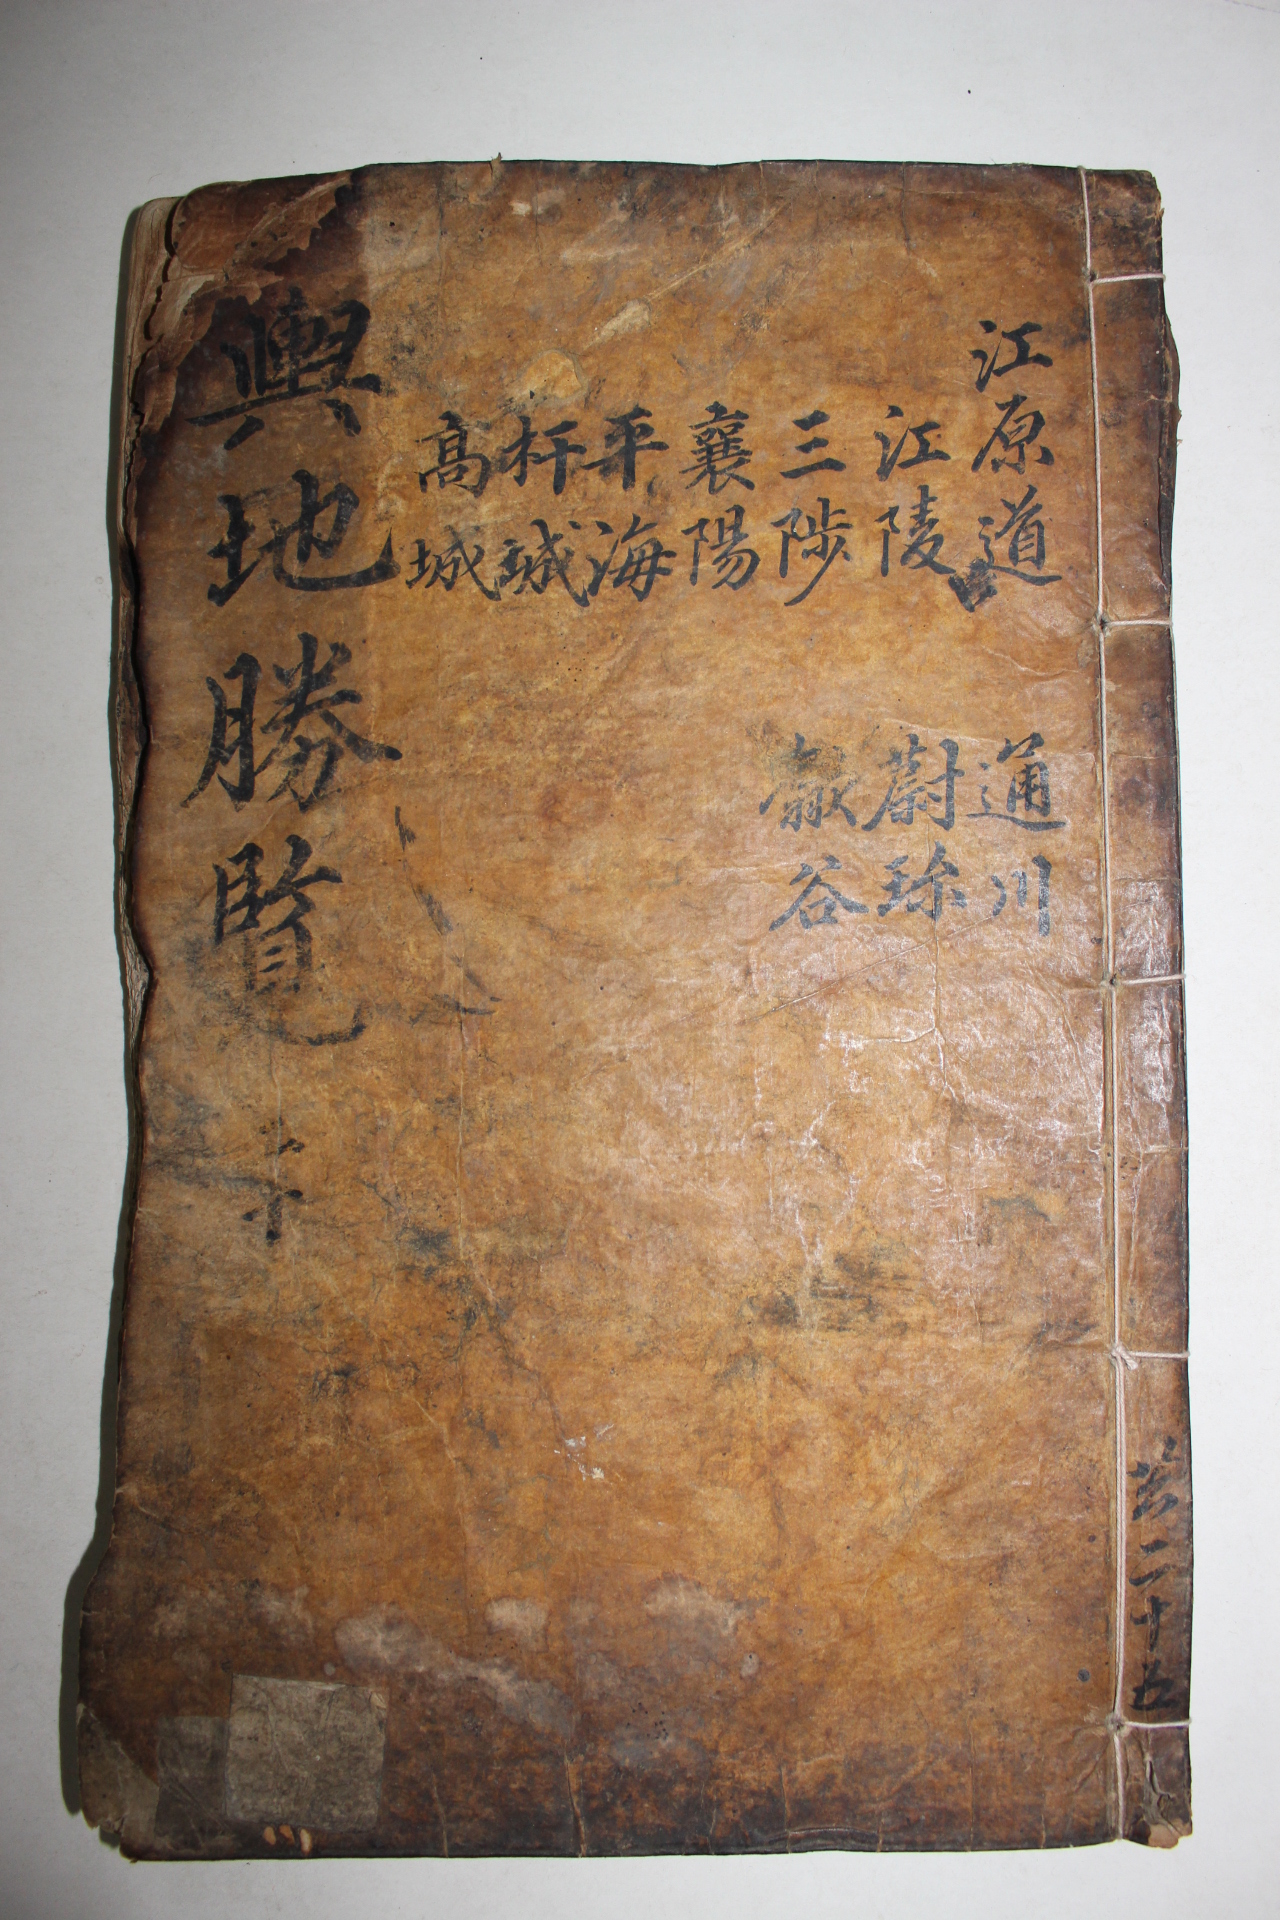 江原道
江陵
三陟
襄陽
平海
杆城
高城
通川
蔚珍
歙谷
輿地勝覽
共二十五